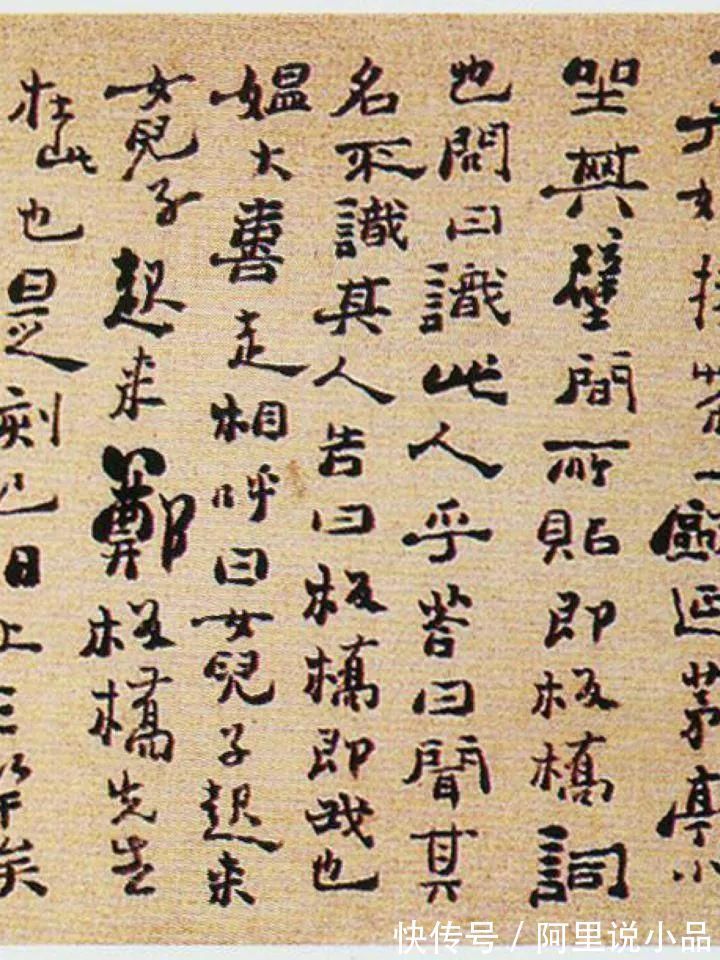 捧茶一甌延茅亭小
坐其壁間所貼即板橋詞
也問曰識此人乎答曰聞其
名不識其人告曰板橋即我也
媼大喜走相呼曰女兒子起来
女兒子起来鄭板橋先生
在此也是刻已日上三竿矣
快传号 / 阿里说小品